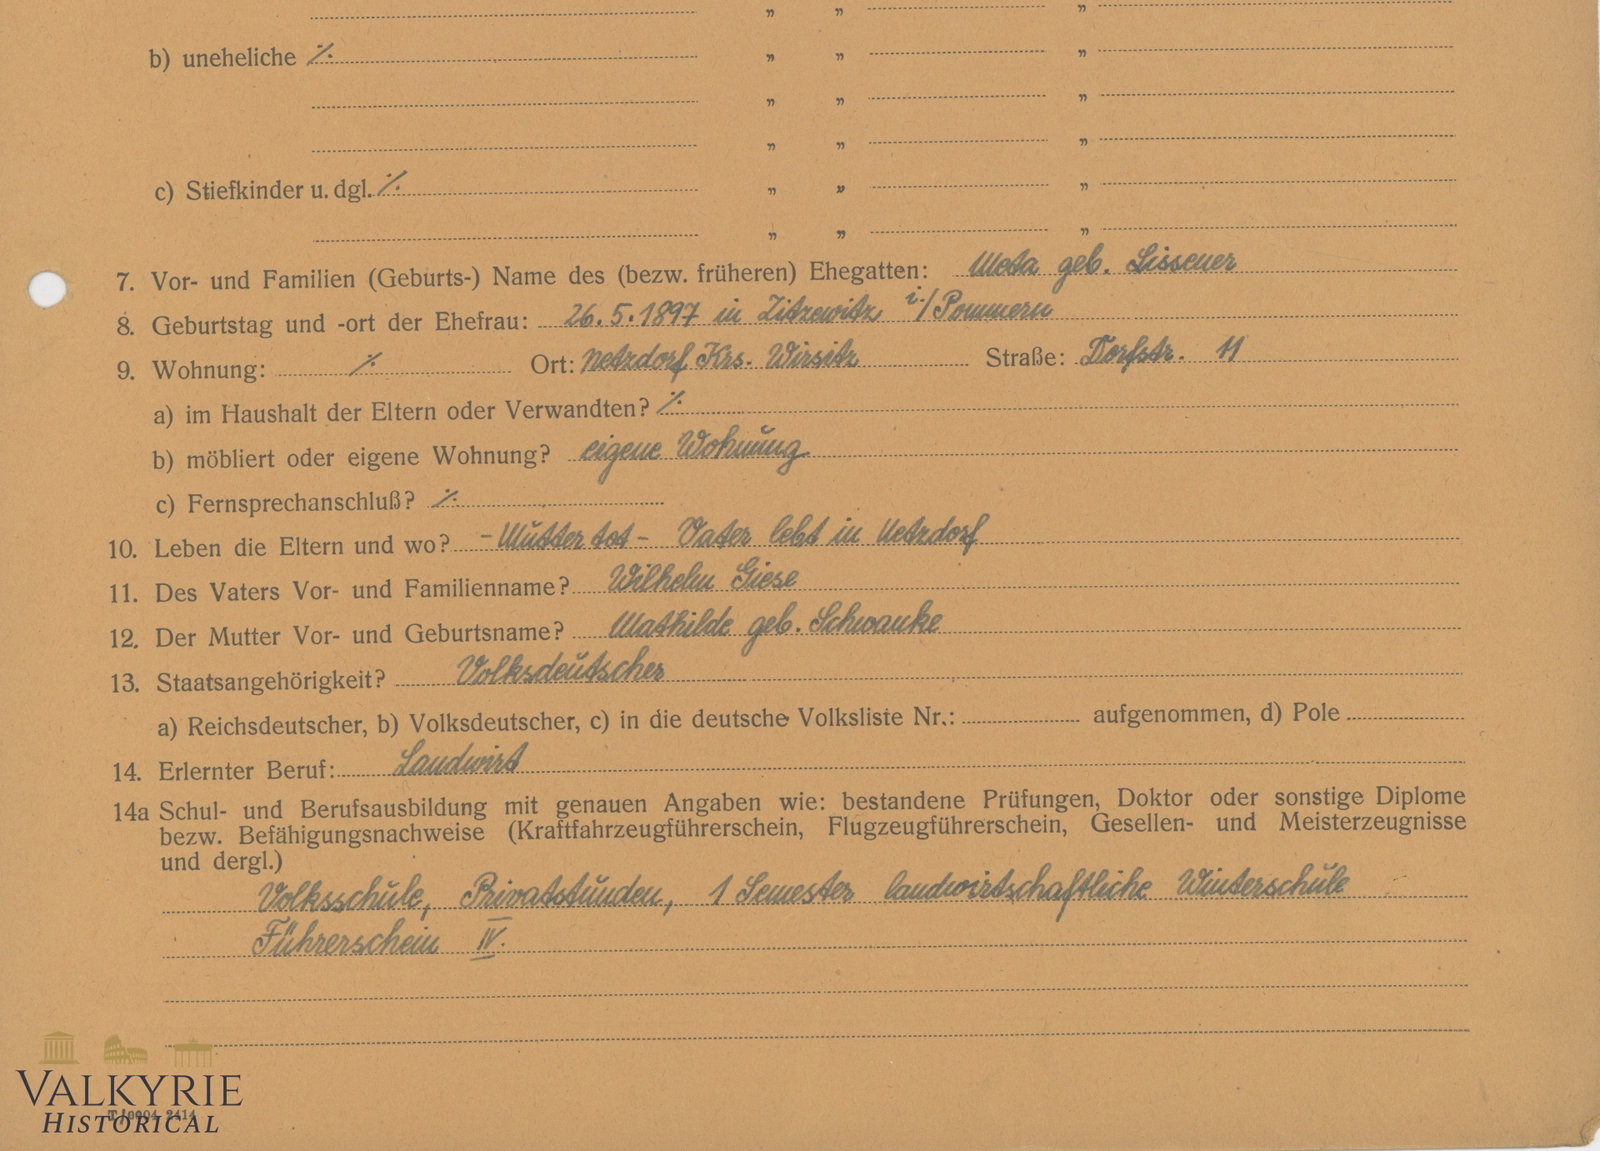 „ „ „
b) uneheliche ·/. „ „ „
„ „ „
„ „ „
c) Stiefkinder u. dgl. ·/. „ „ „
„ „ „
7. Vor- und Familien (Geburts-) Name des (bezw. früheren) Ehegatten: Meta geb. Lissener
8. Geburtstag und -ort der Ehefrau: 26.5.1897 in Zitzewitz i./Pommern
9. Wohnung: ·/. Ort: Netzdorf Krs. Wirsitz Straße: Dorfstr. 11
a) im Haushalt der Eltern oder Verwandten? ·/.
b) möbliert oder eigene Wohnung? eigene Wohnung
c) Fernsprechanschluß? ·/.
10. Leben die Eltern und wo? - Mutter tot - Vater lebt in Netzdorf
11. Des Vaters Vor- und Familienname? Wilhelm Giese
12. Der Mutter Vor- und Geburtsname? Mathilde geb. Schwanke
13. Staatsangehörigkeit? Volksdeutscher
a) Reichsdeutscher, b) Volksdeutscher, c) in die deutsche Volksliste Nr.: aufgenommen, d) Pole
14. Erlernter Beruf: Landwirt
14a Schul- und Berufsausbildung mit genauen Angaben wie: bestandene Prüfungen, Doktor oder sonstige Diplome
bezw. Befähigungsnachweise (Kraftfahrzeugführerschein, Flugzeugführerschein, Gesellen- und Meisterzeugnisse
und dergl.)
Volksschule, Privatstunden, 1 Semester landwirtschaftliche Winterschule
Führerschein IV.
VALKYRIE
HISTORICAL